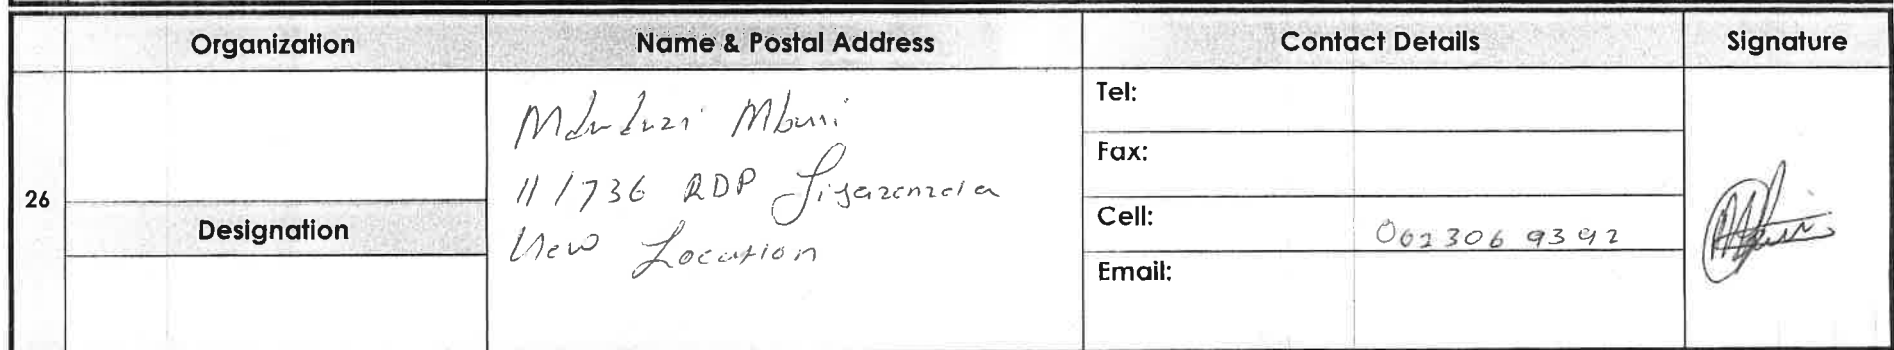 Organization Name & Postal Address Contact Details Signature
26
Mduduzi Mbuni
11/736 RDP
New Location
Designation
Tel:
Fax:
Cell: 062 306 9392
Email: